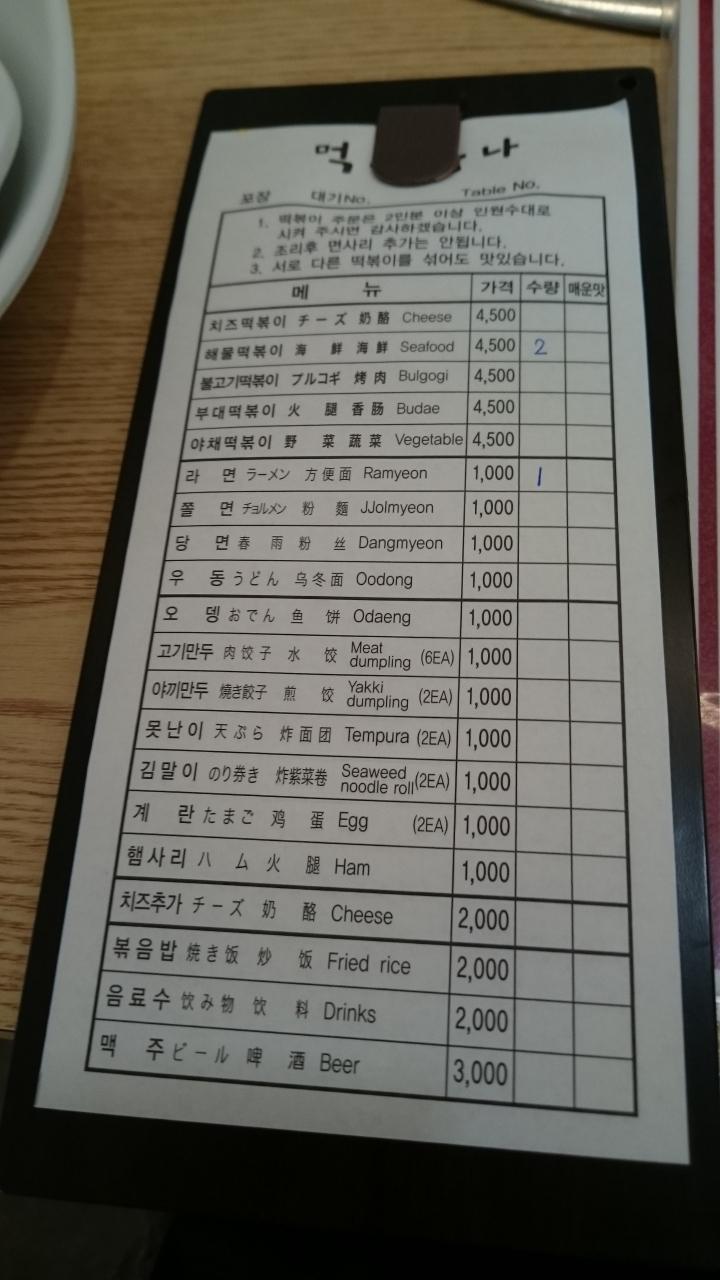 먹 나
포장 대기No. Table No.
1. 떡볶이 주문은 2인분 이상 인원수대로
시켜 주시면 감사하겠습니다.
2. 조리후 면사리 추가는 안됩니다.
3. 서로 다른 떡볶이를 섞어도 맛있습니다.
메 뉴 가격 수량 매운맛
치즈떡볶이 チーズ 奶酪 Cheese 4,500
해물떡볶이 海 鮮 海鮮 Seafood 4,500 2
불고기떡볶이 プルコギ 烤肉 Bulgogi 4,500
부대떡볶이 火 腿 香肠 Budae 4,500
야채떡볶이 野 菜 蔬菜 Vegetable 4,500
라 면 ラーメン 方便面 Ramyeon 1,000 1
쫄 면 チョルメン 粉 麵 JJolmyeon 1,000
당 면 春 雨 粉 丝 Dangmyeon 1,000
우 동 うどん 乌冬面 Oodong 1,000
오 뎅 おでん 鱼 饼 Odaeng 1,000
고기만두 肉饺子 水 饺 Meat dumpling (6EA) 1,000
야끼만두 燒き餃子 煎 饺 Yakki dumpling (2EA) 1,000
못난이 天ぷら 炸面团 Tempura (2EA) 1,000
김말이 のり券き 炸紫菜卷 Seaweed noodle roll (2EA) 1,000
계 란 たまご 鸡 蛋 Egg (2EA) 1,000
햄사리 ハ ム 火 腿 Ham 1,000
치즈추가 チーズ 奶 酪 Cheese 2,000
볶음밥 焼き饭 炒 饭 Fried rice 2,000
음료수 饮み物 饮 料 Drinks 2,000
맥 주 ビール 啤 酒 Beer 3,000